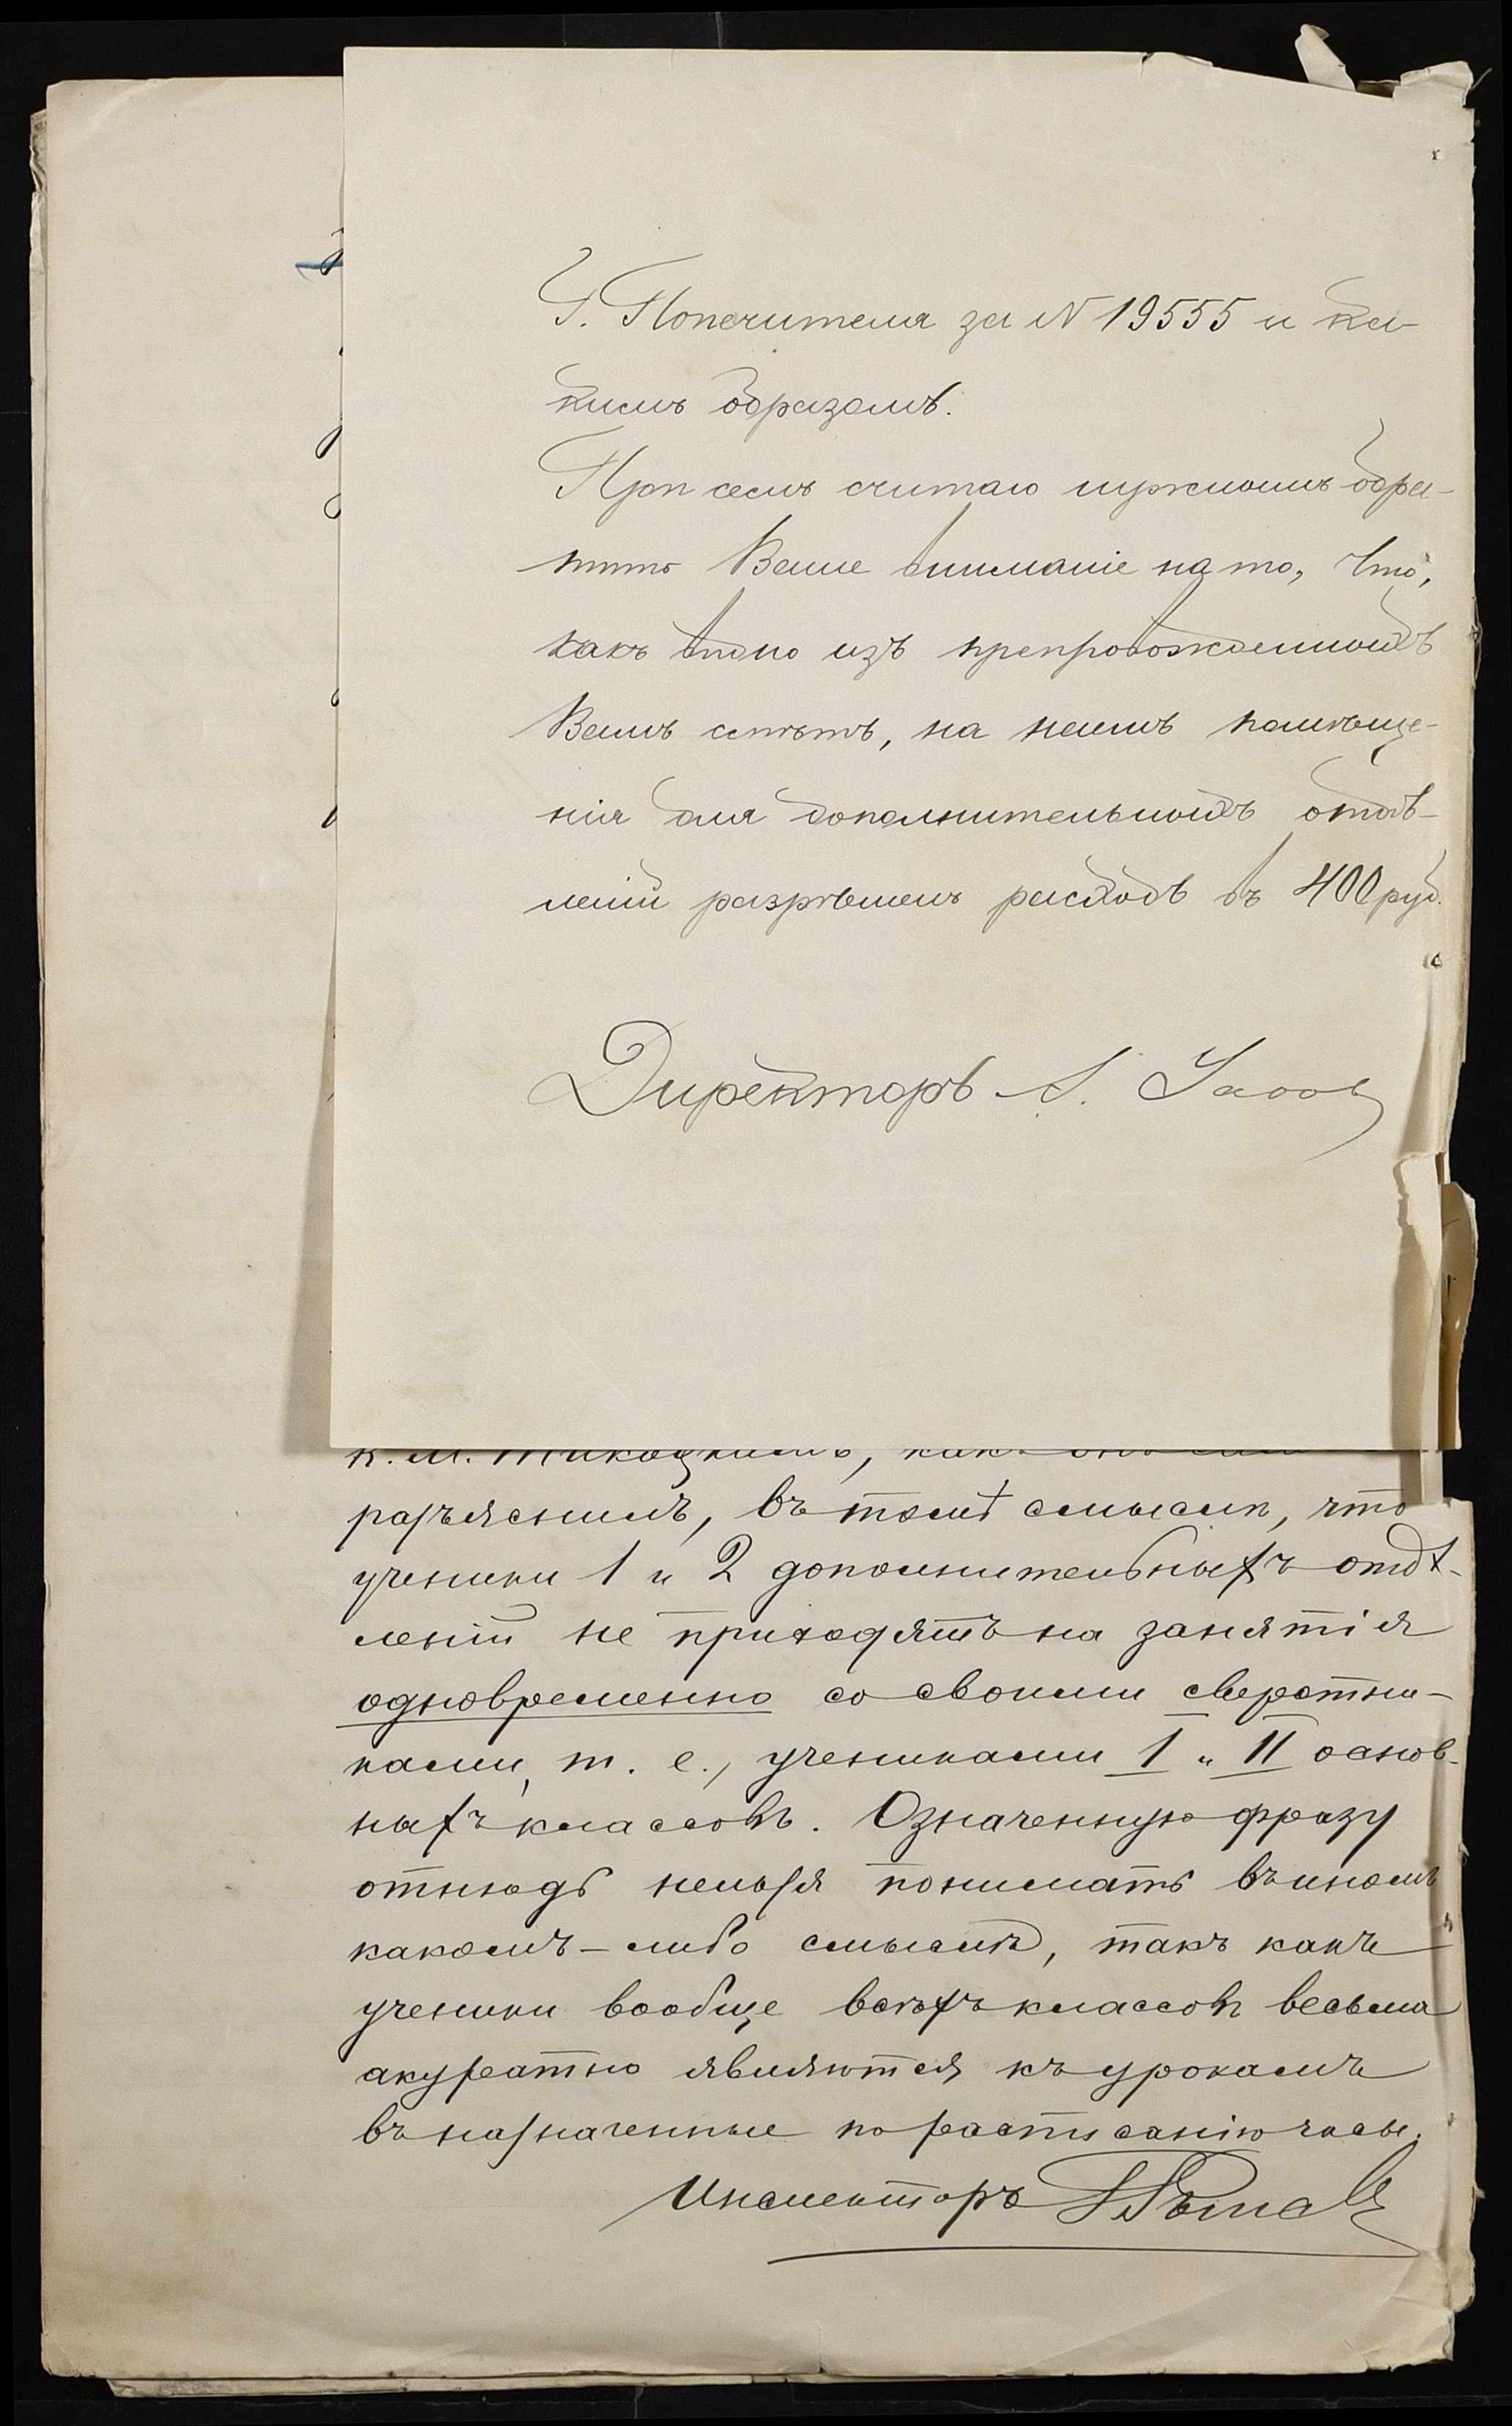 Г. Попечителя за № 19555 и ка-
кимъ образомъ.
При семъ считаю нужнымъ обра-
тить Ваше вниманіе на то, что,
какъ видно изъ препровожденныхъ
Вамъ смѣтъ, на наемъ помѣще-
нія для дополнительныхъ отдѣ-
леній разрѣшенъ расходъ въ 400 руб.
Директоръ А.
разъяснилъ, въ томъ смыслѣ, что
ученики 1 и 2 дополнительныхъ отдѣ-
леній не приходятъ на занятія
одновременно со своими сверстни-
ками, т. е., учениками I и II основ-
ныхъ классовъ. Означенную фразу
отнюдь нельзя понимать въ иномъ
какомъ-либо смыслѣ, такъ какъ
ученики вообще всѣхъ классовъ весьма
акуратно являются къ урокамъ
въ назначенные по растисанію часы.
Инспекторъ